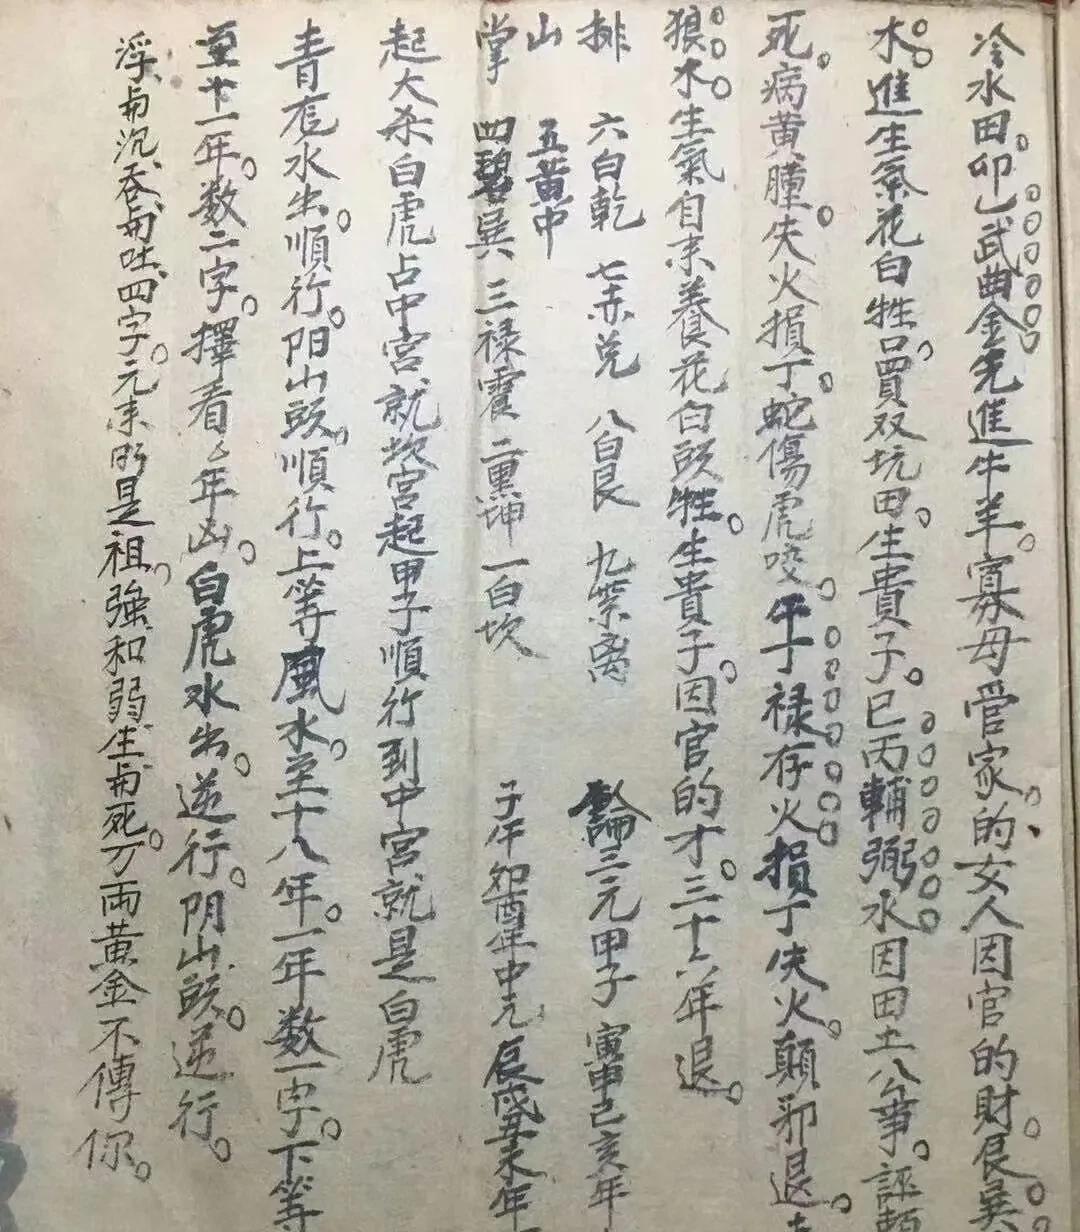 冷水田。卯乚武曲金先進牛羊。寡母管家。的女人因官的財。艮巽
木進生氣花白牲。買双坑田。生貴子。巳丙輔弼水因田土八爭。誣賴
死。病黃腫。失火損丁。蛇傷虎咬。午丁祿存火損丁失火。顛邪退。
狼木生氣自來養花白頭牲。生貴子。因官的才。三十六年退。
排 六白乾 七赤兌 八白艮 九紫离 論三元甲子 寅申巳亥年
山 五黃中
掌 四碧巽 三祿震 二黑坤 一白坎 子午卯酉年中元 辰戌丑未年
起大杀白虎占中宮就坎宮起甲子順行到中宮就是白虎
青龙水出。順行。阳山頭。順行。上等風水。至十八年。一年数一字。下等
至十一年。数二字。擇看乚年凶。白虎水出。逆行。阴山頭。逆行。
浮与沉、吞与吐、四字。元来的是祖。強和弱生与死。万両黃金不傳你。